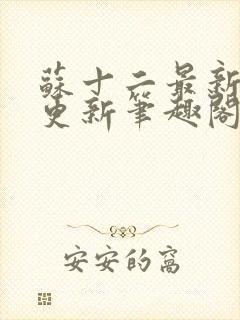 蘇十二最新
更新筆趣閣
安安的窩